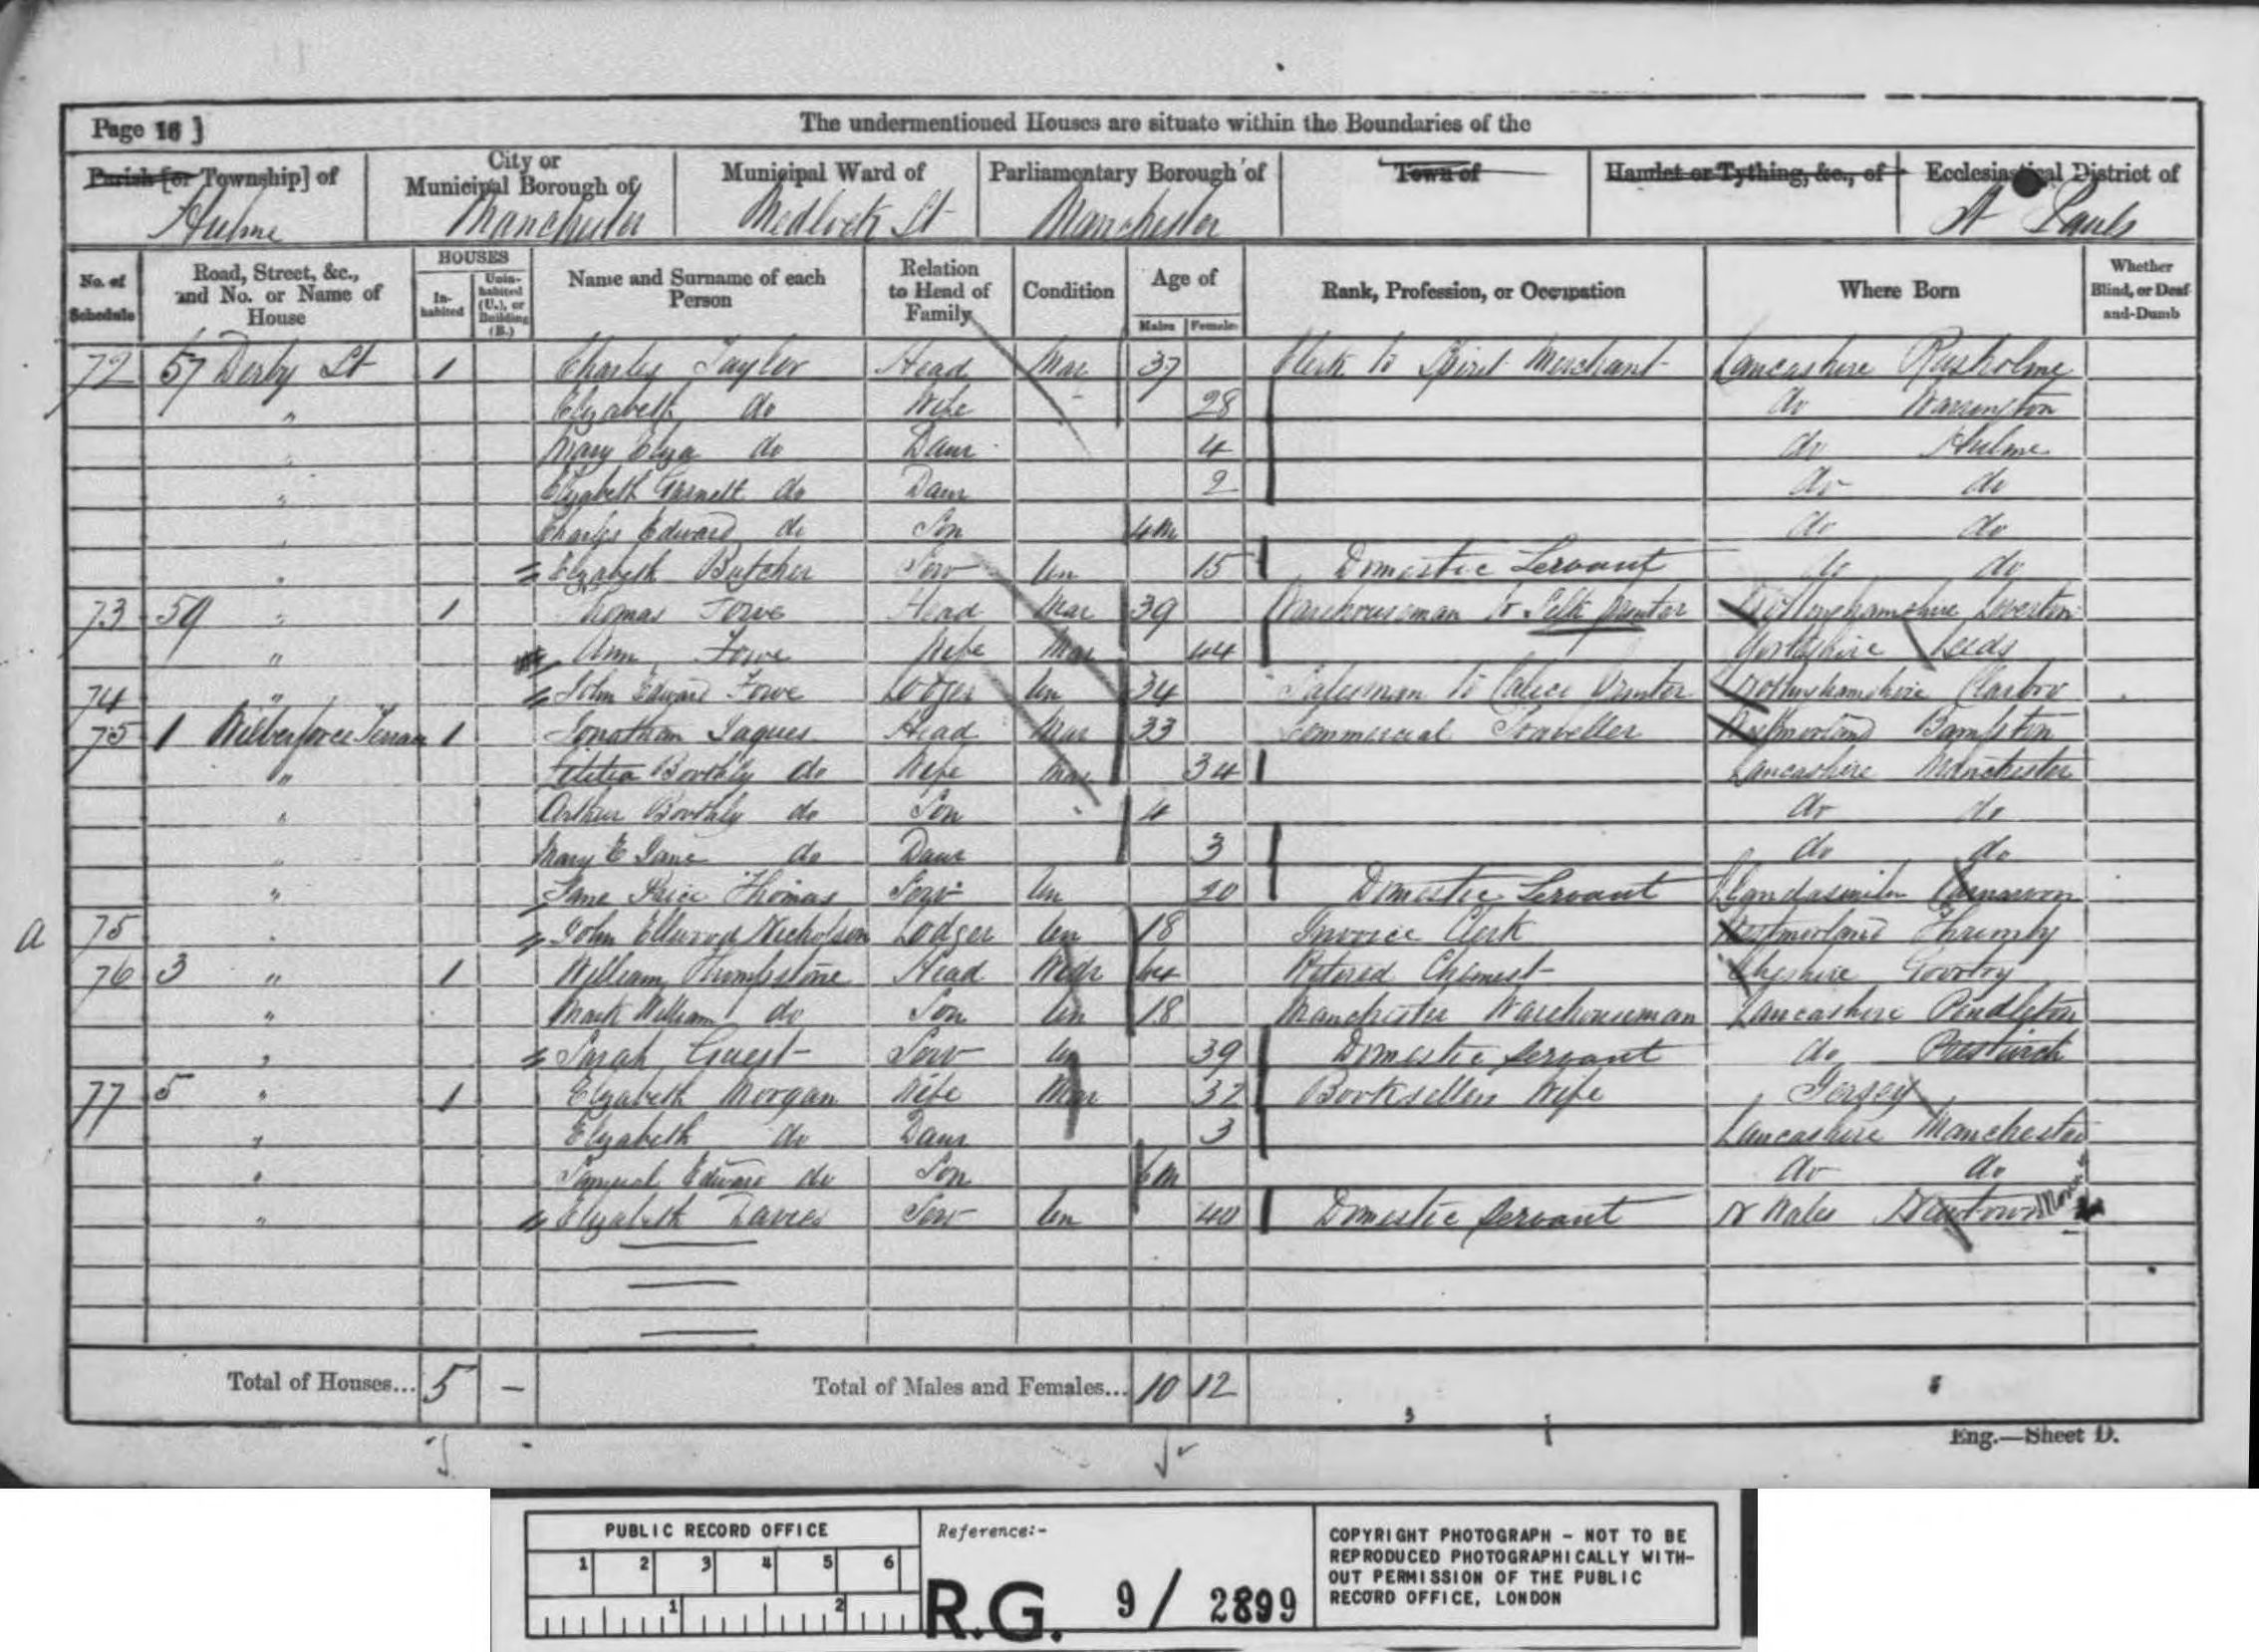 Page 16 ]
The undermentioned Houses are situate within the Boundaries of the
Parish [or Township] of
City or Municipal Borough of
Municipal Ward of
Parliamentary Borough of
Town of
Hamlet or Tything, &c., of
Ecclesiastical District of
Hulme Manchester Medlock St Manchester St Pauls
No. of Schedule
Road, Street, &c., and No. or Name of House
HOUSES
In-habited
Unin-habited (U.), or Building (B.)
Name and Surname of each Person
Relation to Head of Family
Condition
Age of
Males Females
Rank, Profession, or Occupation
Where Born
Whether Blind, or Deaf-and-Dumb
72 57 Derby St 1 Charles Taylor Head Mar 37 Clerk to Spirit Merchant Lancashire Rusholme
" Elizabeth do Wife 28 do Warrington
" Mary Eliza do Daur 4 do Hulme
" Elizabeth Garnett do Daur 2 do do
" Charles Edward do Son 4m do do
" Elizabeth Butcher Serv Un 15 Domestic Servant do do
73 59 " 1 Thomas Towe Head Mar 39 Warehouseman to Silk printer Nottinghamshire Leverton
" Ann Towe Wife Mar 44 Yorkshire Leeds
74 " John Edward Towe Lodger Un 34 Salesman to Calico Printer Nottinghamshire Clarbro
75 1 Wilberforce Terrace 1 Jonathan Jaques Head Mar 33 Commercial Traveller Westmorland Bampton
" Boothly do Wife Mar 34 Lancashire Manchester
" Arthur Boothly do Son 4 do do
" Mary E Jane do Daur 3 do do
" Jane Price Thomas Serv Un 20 Domestic Servant Carnarvon
a 75 " John Ellwood Nicholson Lodger Un 18 Invoice Clerk Westmorland Thrimby
76 3 " 1 William Thumpstone Head Widr 64 Retired Chemist Cheshire Goostry
" Mark William do Son Un 18 Manchester Warehouseman Lancashire Pendleton
" Sarah Guest Serv Un 39 Domestic Servant do Prestwich
77 5 " 1 Elizabeth Morgan Wife Mar 32 Booksellers Wife Jersey
" Elizabeth do Daur 3 Lancashire Manchester
" Samuel Edward do Son 6m do do
" Elizabeth Davies Serv Un 40 Domestic Servant N Wales Newtown
Total of Houses... 5 —
Total of Males and Females... 10 12
Eng.—Sheet D.
PUBLIC RECORD OFFICE
1 2 3 4 5 6
1 2
Reference:-
R.G. 9/2899
COPYRIGHT PHOTOGRAPH - NOT TO BE
REPRODUCED PHOTOGRAPHICALLY WITH-
OUT PERMISSION OF THE PUBLIC
RECORD OFFICE, LONDON